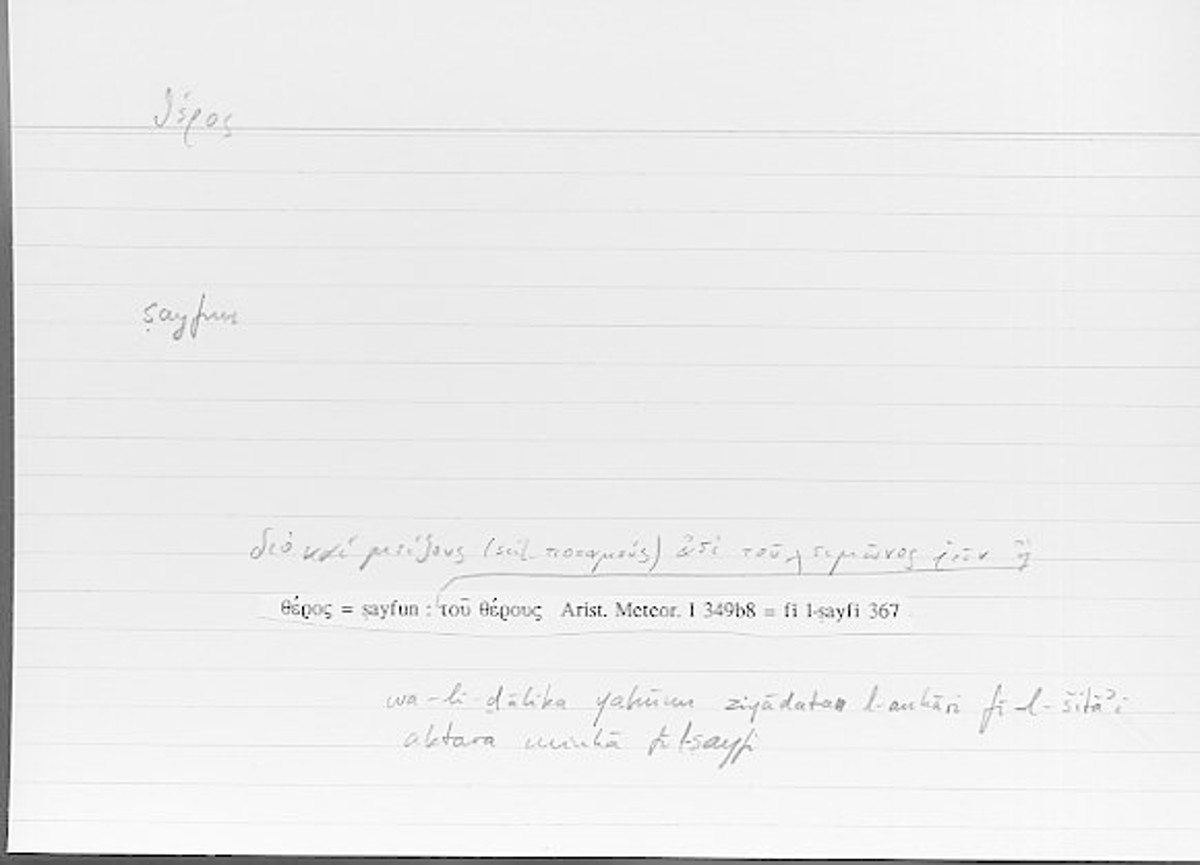 θέρος
ṣayfun
διὸ καὶ μείζους (scil. ποταμούς) ἀεὶ τοῦ χειμῶνος ῥεῖν ἢ
θέρος = ṣayfun : τοῦ θέρους Arist. Meteor. I 349b8 = fī l-ṣayfi 367
wa-li-ḏālika yakūnu ziyādatu l-anhāri fī l-šitāʾi
akṯara minhā fī l-ṣayfi